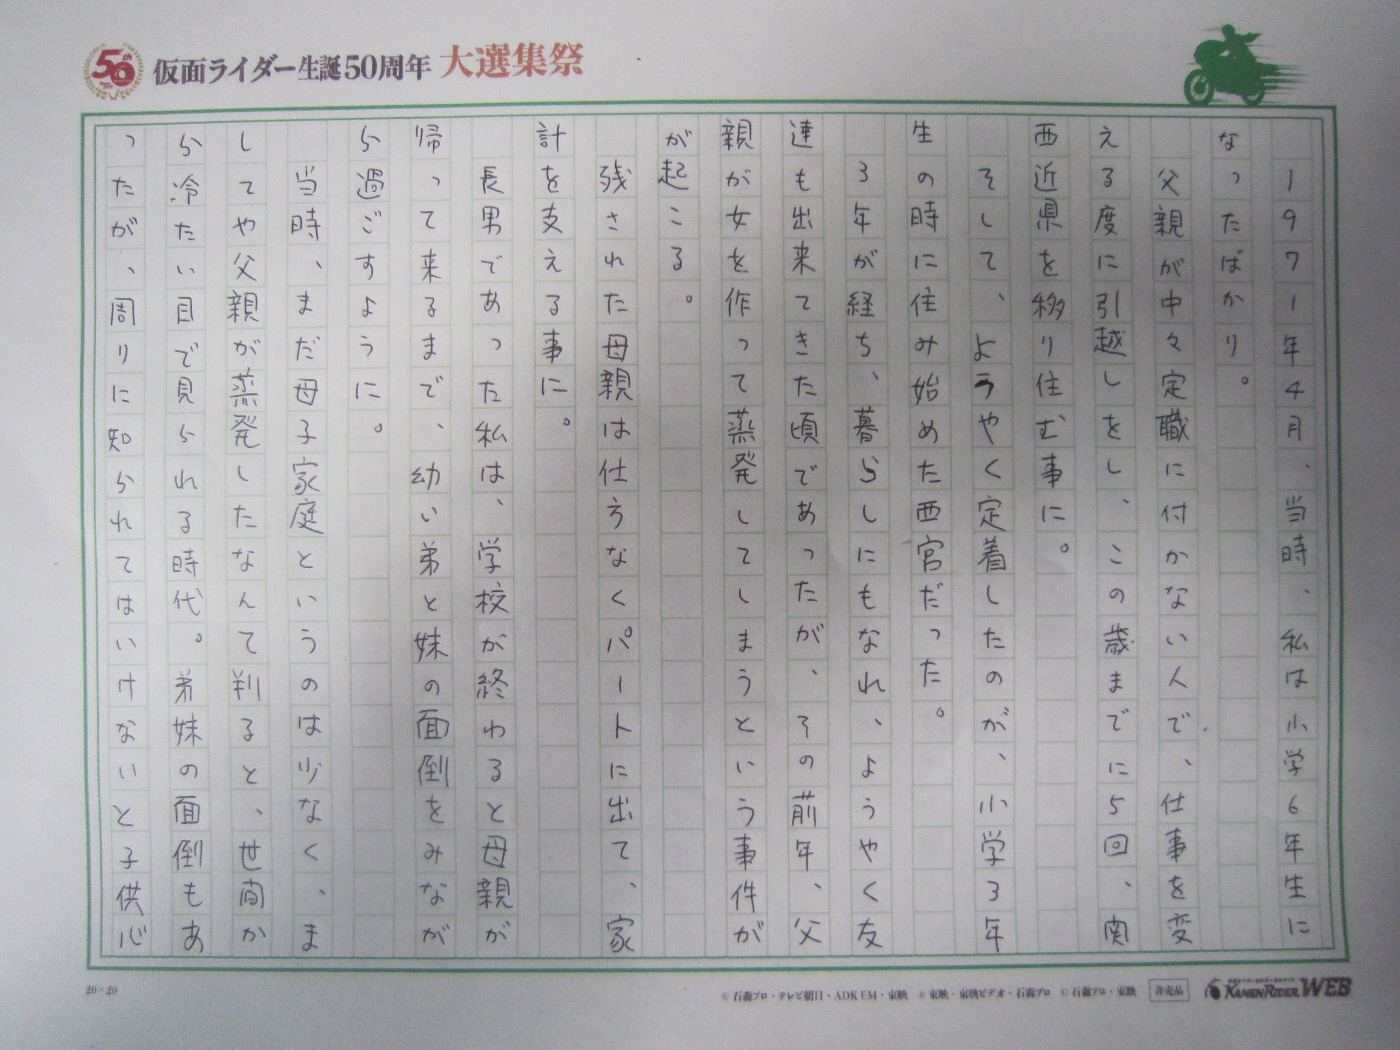 50th
仮面ライダー生誕50周年 大選集祭
1971年4月、当時、私は小学6年生に
なったばかり。
父親が中々定職に付かない人で、仕事を変
える度に引越しをし、この歳までに5回、関
西近県を移り住む事に。
そして、ようやく定着したのが、小学3年
生の時に住み始めた西宮だった。
3年が経ち、暮らしにもなれ、ようやく友
達も出来てきた頃であったが、その前年、父
親が女を作って蒸発してしまうという事件が
が起こる。
残された母親は仕方なくパートに出て、家
計を支える事に。
長男であった私は、学校が終わると母親が
帰って来るまで、幼い弟と妹の面倒をみなが
ら過ごすように。
当時、まだ母子家庭というのは少なく、ま
してや父親が蒸発したなんて判ると、世間か
ら冷たい目で見られる時代。弟妹の面倒もあ
ったが、周りに知られてはいけないと子供心
20×20
©石森プロ・テレビ朝日・ADK EM・東映 ©東映・東映ビデオ・石森プロ ©石森プロ・東映
非売品
KAMEN RIDER WEB